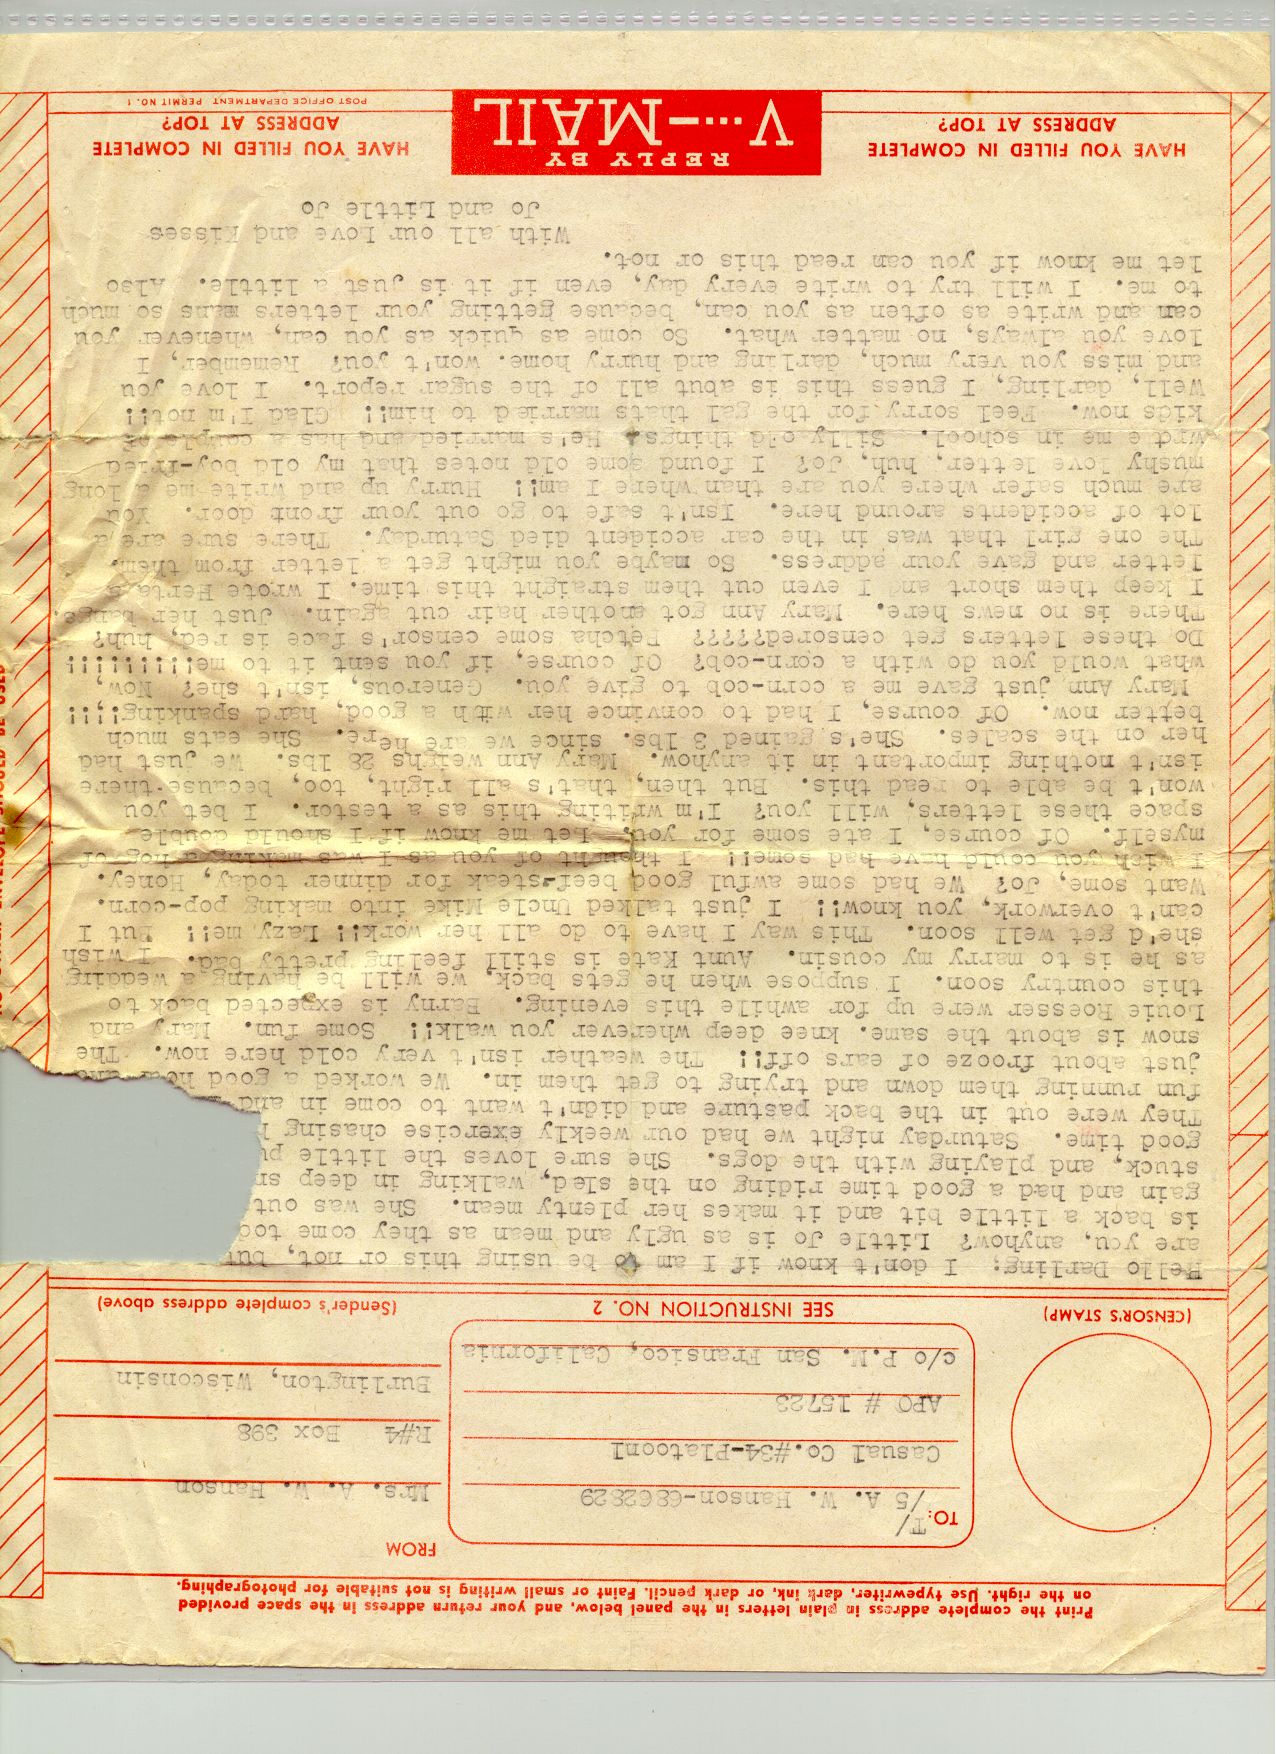 Print the complete address in plain letters in the panel below, and your return address in the space provided
on the right. Use typewriter, dark ink, or dark pencil. Faint or small writing is not suitable for photographing.
FROM
TO: T/
/5 A. W. Hanson-6862829
Mrs. A. W. Hanson
Casual Co.#34-Platoon1
R#4 Box 398
APO # 15723
Burlington, Wisconsin
c/o P.M. San Fransico, California
(CENSOR'S STAMP)
SEE INSTRUCTION NO. 2
(Sender's complete address above)
Hello Darling; I don't know if I am to be using this or not, but
are you, anyhow? Little Jo is as ugly and mean as they come tod
is back a little bit and it makes her plenty mean. She was out
gain and had a good time riding on the sled, walking in deep sn
stuck, and playing with the dogs. She sure loves the little pu
good time. Saturday night we had our weekly exercise chasing
They were out in the back pasture and didn't want to come in and
fun running them down and trying to get them in. We worked a good hour and
just about frooze of ears off!! The weather isn't very cold here now. The
snow is about the same. knee deep wherever you walk!! Some fun. Mary and
Louie Roesser were up for awhile this evening. Barny is expected back to
this country soon. I suppose when he gets back, we will be having a wedding
as he is to marry my cousin. Aunt Kate is still feeling pretty bad. I wish
she'd get well soon. This way I have to do all her work!! Lazy me!! But I
can't overwork, you know!! I just talked Uncle Mike into making pop-corn.
Want some, Jo? We had some awful good beef-steak for dinner today, Honey.
I wish you could have had some!! I thought of you as I was making a hog of
myself. Of course, I ate some for you. Let me know if I should double
space these letters, will you? I'm writing this as a testor. I bet you
won't be able to read this. But then, that's all right, too, because there
isn't nothing important in it anyhow. Mary Ann weighs 28 lbs. We just had
her on the scales. She's gained 3 lbs. since we are here. She eats much
better now. Of course, I had to convince her with a good, hard spanking!!!!
Mary Ann just gave me a corn-cob to give you. Generous, isn't she? Now,
what would you do with a corn-cob? Of course, if you sent it to me!!!!!!!!!
Do these letters get censored????? Betcha some censor's face is red, huh?
There is no news here. Mary Ann got another hair cut again. Just her bangs.
I keep them short and I even cut them straight this time. I wrote Herta a
letter and gave your address. So maybe you might get a letter from them.
The one girl that was in the car accident died Saturday. There sure are a
lot of accidents around here. Isn't safe to go out your front door. You
are much safer where you are than where I am!! Hurry up and write me a long
mushy love letter, huh, Jo? I found some old notes that my old boy-fried
wrote me in school. Silly old things. He's married and has a couple of
kids now. Feel sorry for the gal thats married to him!! Glad I'm not!!
Well, darling, I guess this is abut all of the sugar report. I love you
and miss you very much, darling and hurry home. won't you? Remember, I
love you always, no matter what. So come as quick as you can, whenever you
can and write as often as you can, because getting your letters mans so much
to me. I will try to write every day, even if it is just a little. Also
let me know if you can read this or not.
With all our Love and Kisses
Jo and Little Jo
HAVE YOU FILLED IN COMPLETE
ADDRESS AT TOP?
REPLY BY
V...—MAIL
HAVE YOU FILLED IN COMPLETE
ADDRESS AT TOP?
POST OFFICE DEPARTMENT PERMIT NO. 1
ENVELOPE SHOULD BE USED